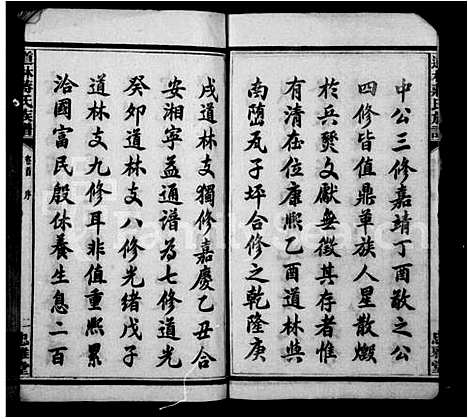 中公三修嘉靖丁酉敬之公
四修皆值鼎革族人星散燬
於兵燹文獻無徵其存者惟
有清在位康熙乙酉道林與
南蔭瓦子坪合修之乾隆庚
戌道林支獨修嘉慶乙丑合
安湘寧益通譜為七修道光
癸卯道林支八修光緒戊子
道林支九修耳非值重熙累
洽國富民殷休養生息二百
道林蔣氏族譜
卷首
序
一
思雅堂